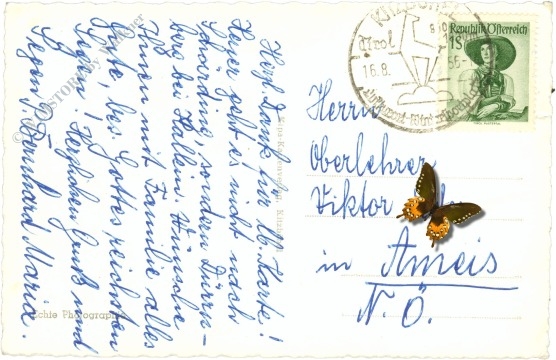 Herzl. Dank für lb. Karte!
Heuer geht es nicht nach
Schärding, sondern Dürrn-
berg bei Hallein. Wünsche
Ihnen mit Familie alles
Gute, bes. Gottes reichsten
Segen! Herzlichen Gruß und
Segen, Bernhard Maria.
Echte Photographie
KITZBÜHEL
Tirol
16.8.
Republik Österreich
1S
Herrn
Oberlehrer
Viktor
in Ameis
N. Ö.